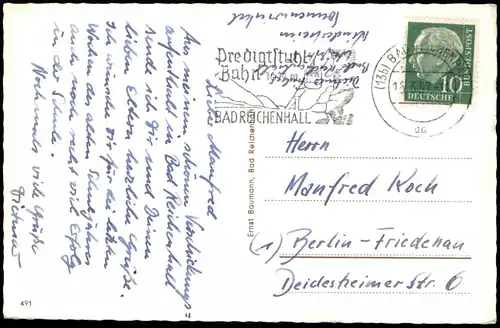 Lieber Manfred
Aus meinem schönen Verschickungs=
aufenthalt in Bad Reichenhall
sende ich Dir und Deinen
lieben Eltern herzliche Grüße.
Ich wünsche Dir für die letzten
Wochen des alten Schuljahres
auch recht viel Erfolg
in der Schule.
Nochmals viele Grüße
Dietmar
491
Ernst Baumann, Bad Reichen
Predigtstuhl-
Bahn
BAD REICHENHALL
Kinderheim
Sonnenwinkel
(13b) BAD
DEUTSCHE BUNDESPOST
10
Herrn
Manfred Koch
(1) Berlin-Friedenau
Deidesheimer Str. 6